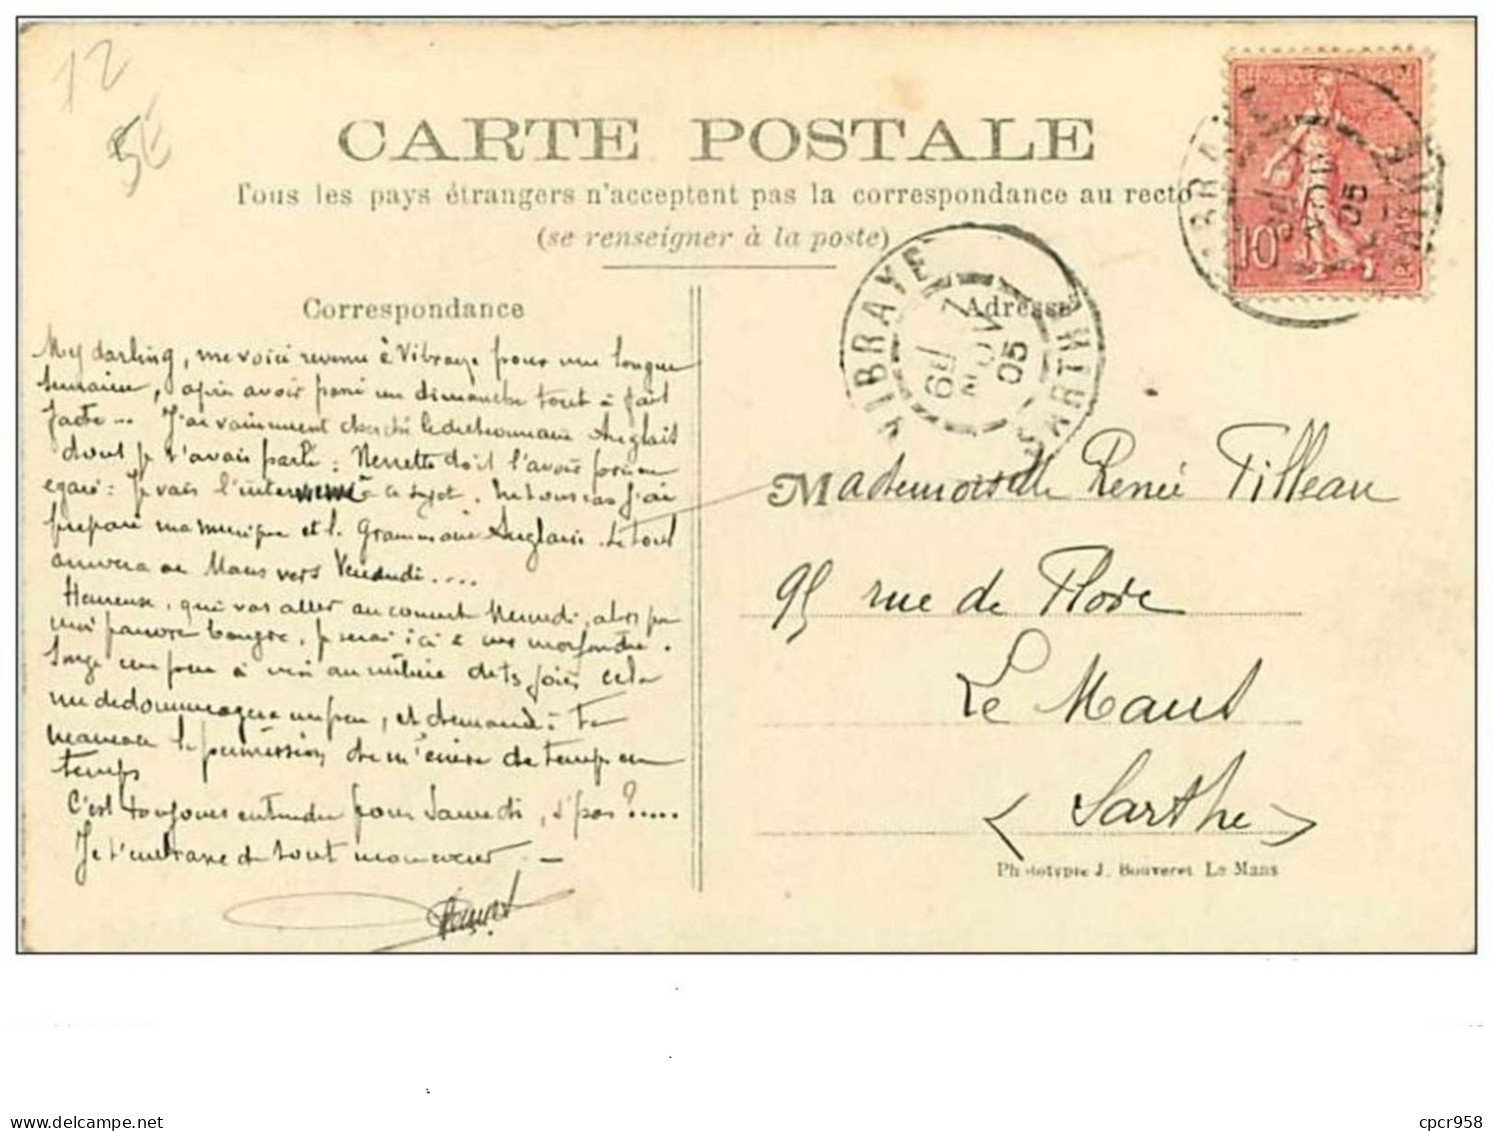 12
5E
CARTE POSTALE
Tous les pays étrangers n'acceptent pas la correspondance au recto
(se renseigner à la poste)
Correspondance
Adresse
RÉPUBLIQUE FRANÇAISE
10
VIBRAYE
SARTHE
6E 7
NOV
05
My darling, me voici revenu à Vibraye pour une longue
semaine, après avoir passé un dimanche tout à fait
J'ai vainement cherché le dictionnaire Anglais
dont je t'avais parlé : doit l'avoir
égaré : Je vais l' à ce sujet. En tous cas j'ai
préparé ma musique et la Grammaire Anglaise. Le tout
arrivera au Mans vers Vendredi....
Heureuse, qui vas aller au concert alors que
moi pauvre bougre, je serai ici à me morfondre.
Songe un peu à moi au milieu de tes joies cela
me dédommagera un peu, et demande à ta
maman la permission de m'écrire de temps en
temps
C'est toujours entendu pour Samedi, s'pas ?.....
Je t'embrasse de tout mon coeur. —
Mademoiselle Renée Tilleau
95 rue de Flore
Le Mans
(Sarthe)
Phototypie J. Bouveret Le Mans
cpcr958